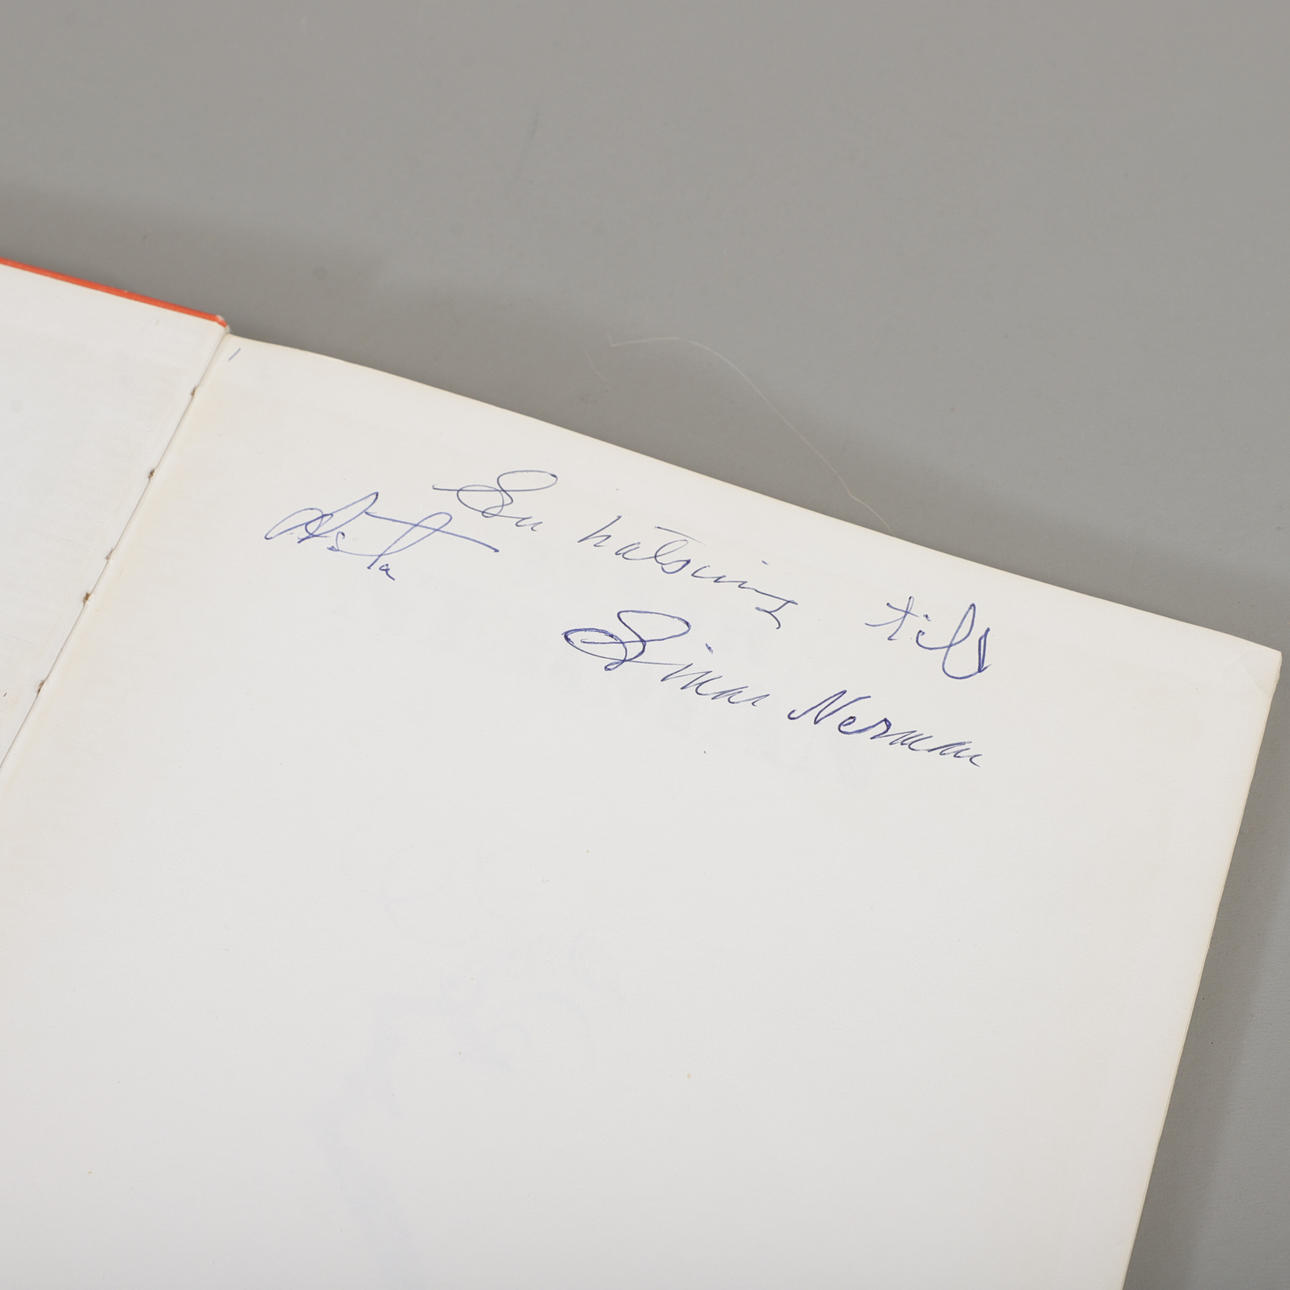 En hälsning till
Asta
Einar Nerman